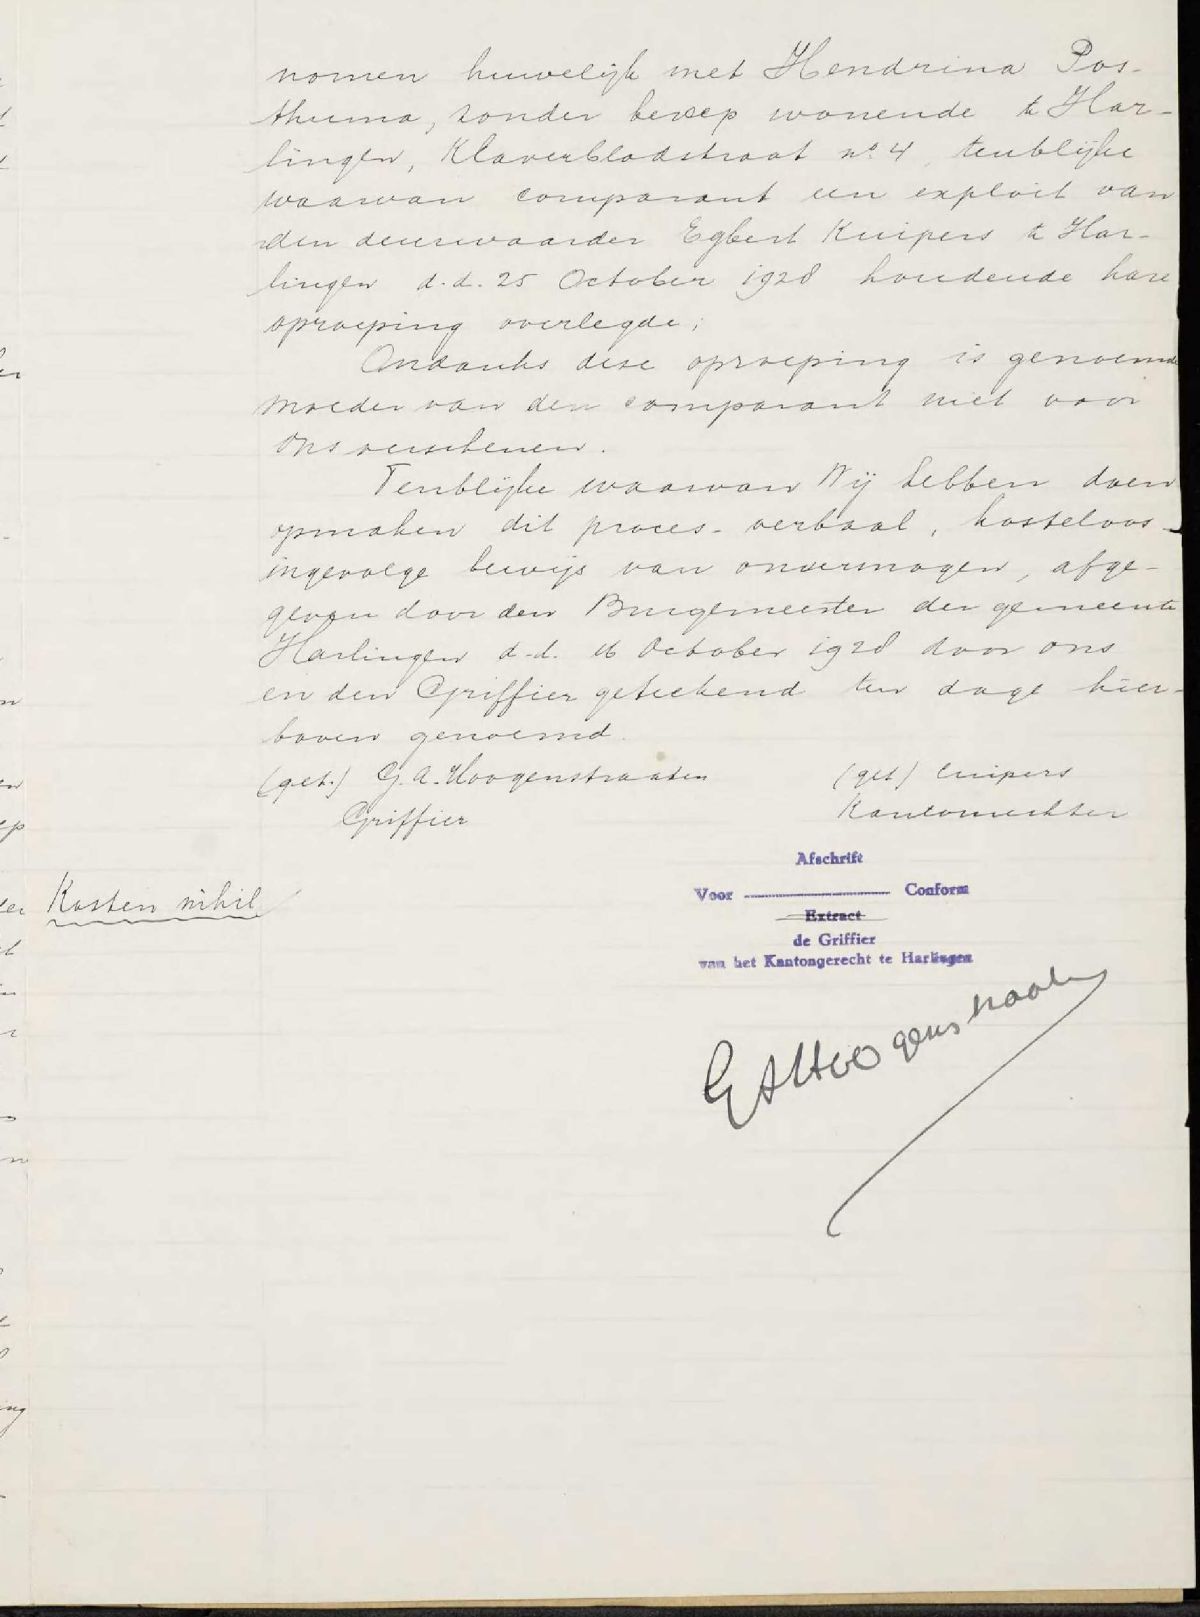 nomen huwelijk met Hendrina Pos-
thuma, zonder beroep wonende te Har-
lingen, Klaverbladstraat no. 4, tenblijke
waarvan comparant een exploit van
den deurwaarder Egbert Kuipers te Har-
lingen d.d. 25 October 1928 houdende hare
oproeping overlegde;
Ondanks deze oproeping is genoemde
moeder van den comparant niet voor
ons verschenen.
Tenblijke waarvan Wij hebben doen
opmaken dit proces-verbaal, kosteloos
ingevolge bewijs van onvermogen, afge-
geven door den Burgemeester der gemeente
Harlingen d.d. 16 October 1928 door ons
en den Griffier geteekend ten dage hier-
boven genoemd.
(get.) G.A. Hoogenstraaten (get) Cuipers
Griffier Kantonrechter
Afschrift
Voor Conform
Extract
de Griffier
van het Kantongerecht te Harlingen
Kosten nihil
GAHoogenstraaten